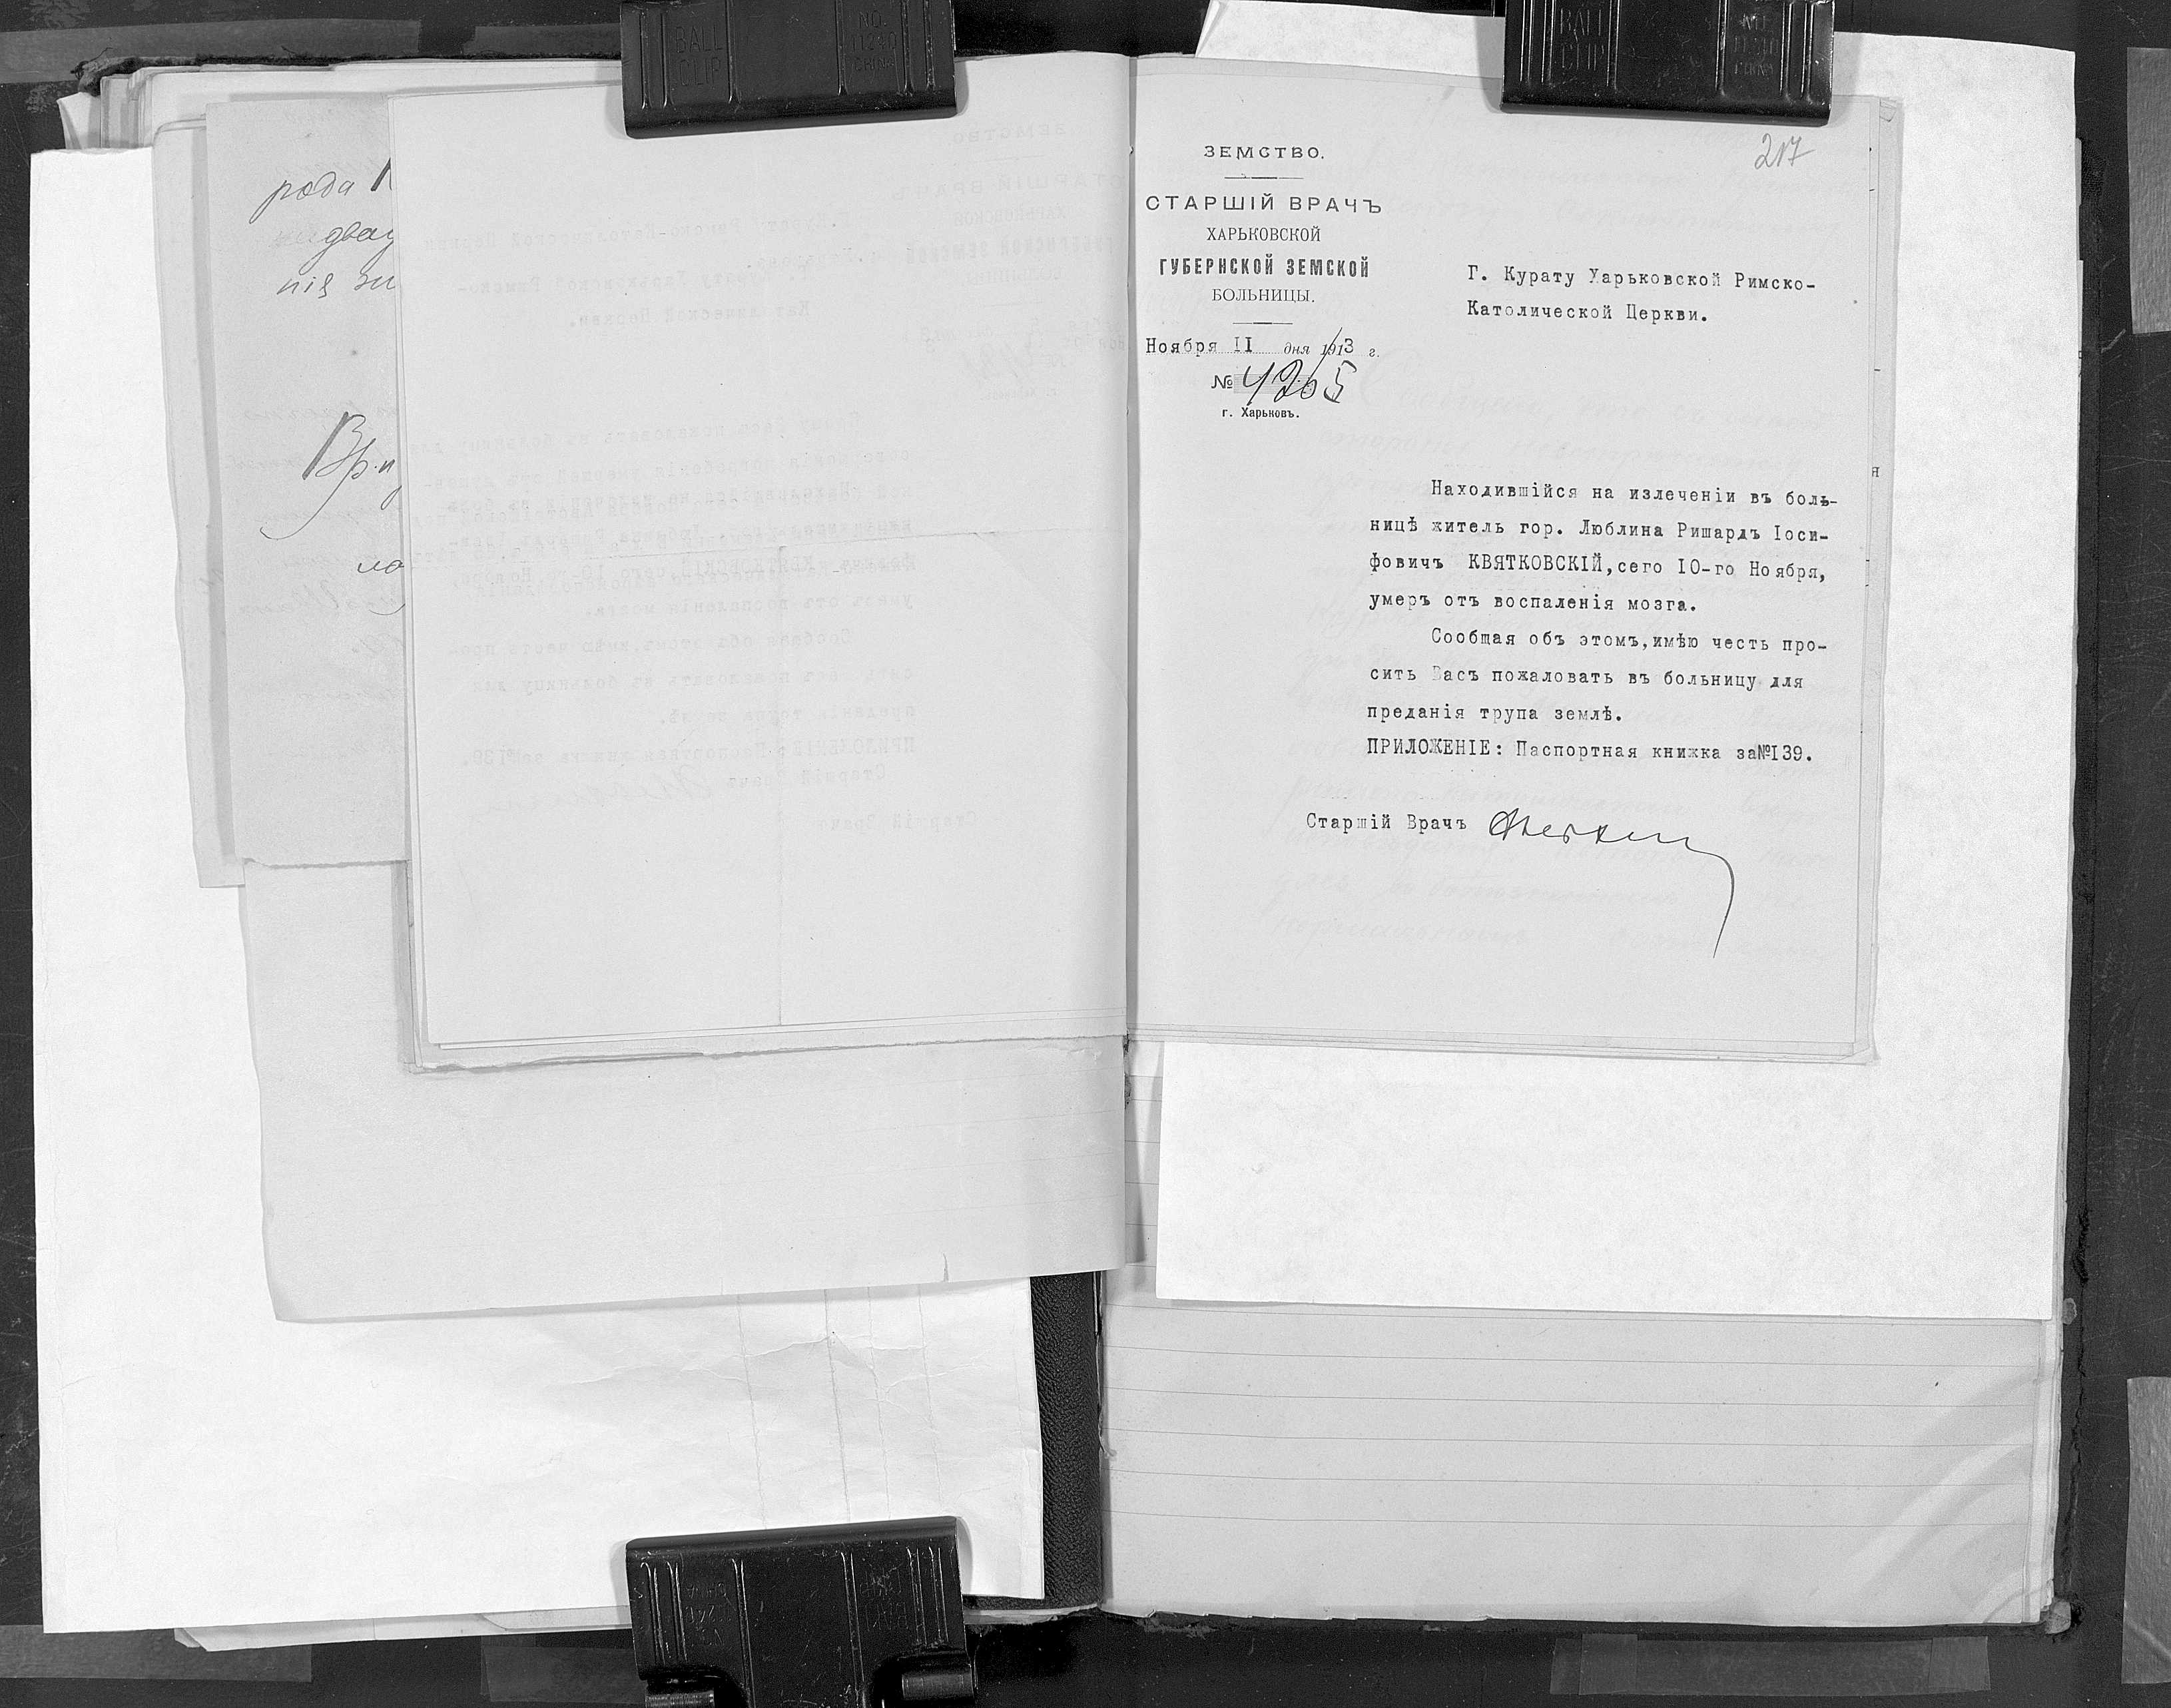 рода
двац
нія
217
ЗЕМСТВО.
СТАРШІЙ ВРАЧЪ
ХАРЬКОВСКОЙ
ГУБЕРНСКОЙ ЗЕМСКОЙ
БОЛЬНИЦЫ.
Ноября II дня 1913 г.
№ 4205
г. Харьковъ.
Г. Курату Харьковской Римско-
Католической Церкви.
Находившійся на излеченіи въ боль-
ницѣ житель гор. Люблина Ришардъ Іоси-
фовичъ КВЯТКОВСКІЙ,сего IO-го Ноября,
умеръ отъ воспаленія мозга.
Сообщая объ этомъ,имѣю честь про-
сить Васъ пожаловать въ больницу для
преданія трупа землѣ.
ПРИЛОЖЕНІЕ: Паспортная книжка за№I39.
Старшій Врачъ